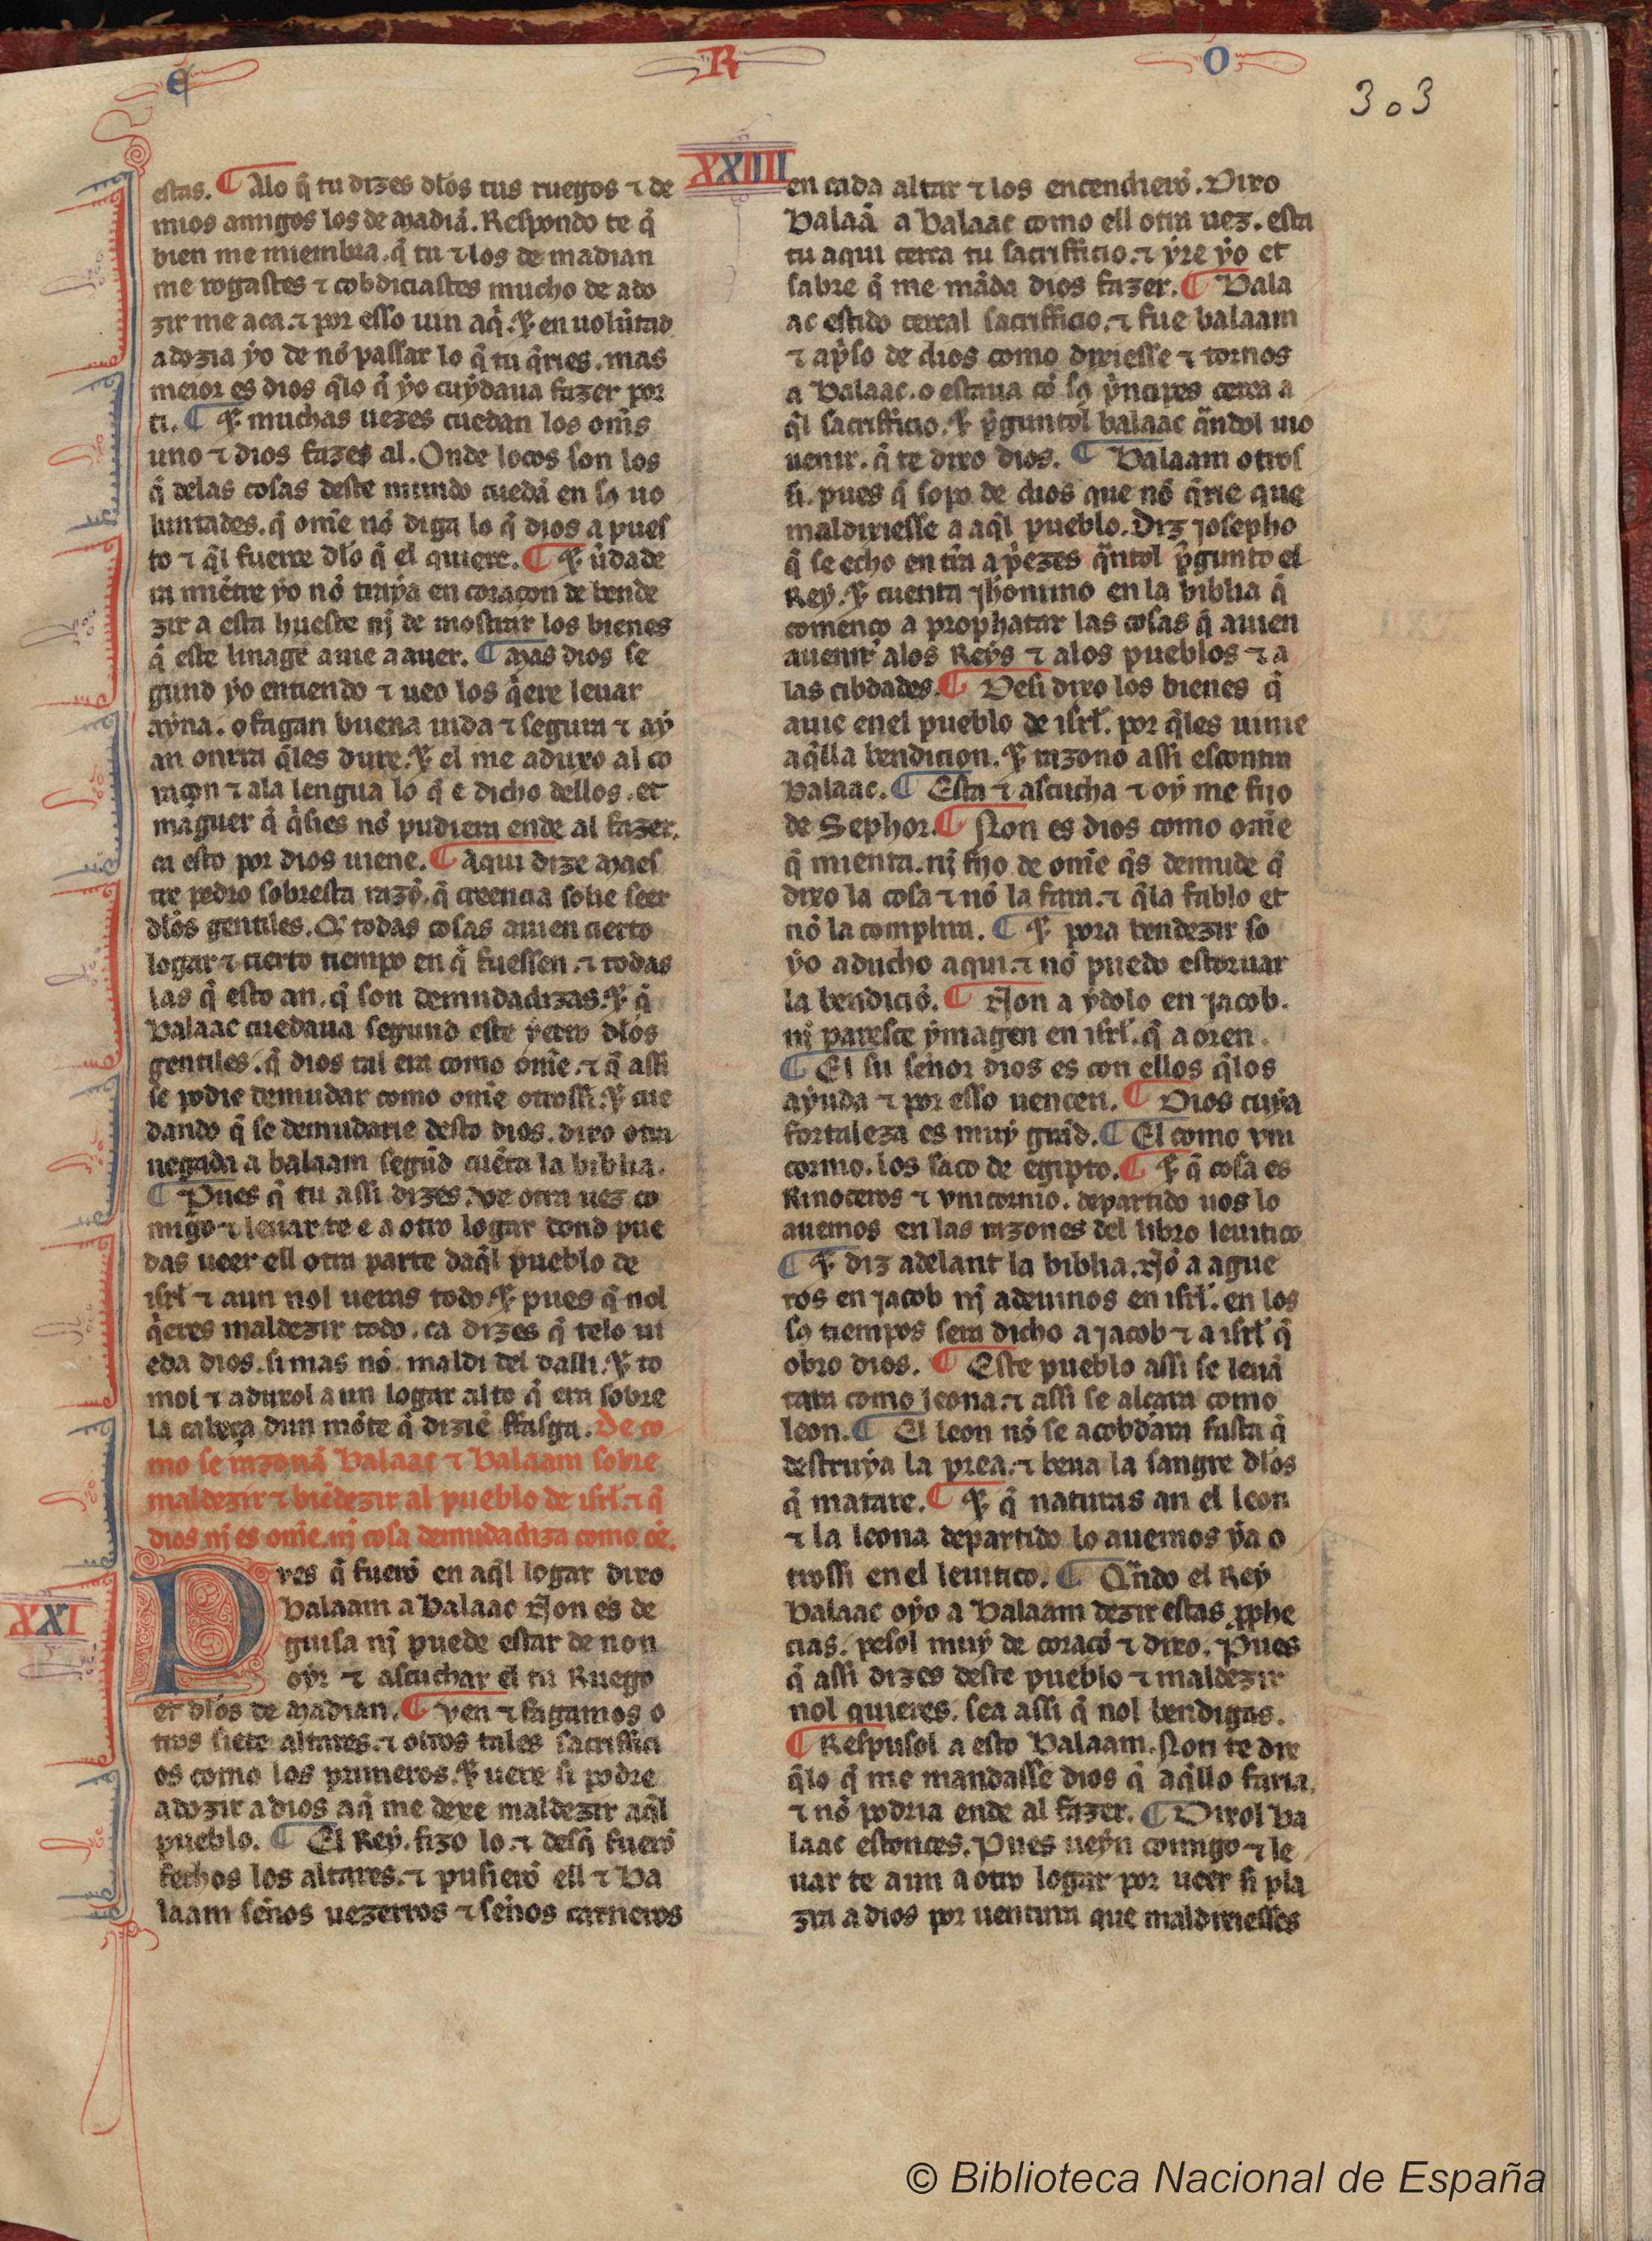 e R o
303
XXIIII
estas. ¶ Alo q̃ tu dizes dl̃os tus ruegos ⁊ de
mios amigos los de Madiã. Respondo te q̃
bien me miembra. q̃ tu ⁊ los de madian
me rogastes ⁊ cobdiciastes mucho de adu
zir me aca. ⁊ por esso uin aq̃. ⁊ en uolũtad
aduzia yo de nõ passar lo q̃ tu q̃ries. mas
meior es dios q̃lo q̃ yo cuydaua fazer por
ti. ¶ ⁊ muchas uezes cuedan los om̃s
uno ⁊ dios fazes al. Onde locos son los
q̃ delas cosas deste mundo cuedã en sos uo
luntades. q̃ om̃e nõ diga lo q̃ dios a pues
to ⁊ q̃l fuerre dl̃o q̃ el quiere. ¶ ⁊ ũdade
ra miẽtre yo nõ traya en coraçon de bende
zir a esta hueste nj de mostrar los bienes
q̃ este linage auie a auer. ¶ Mas dios se
gund yo entiendo ⁊ ueo los q̃ere leuar
ayna. o fagan buena uida ⁊ segura ⁊ ay
an onrra q̃les dure. ⁊ el me aduxo al co
raçon ⁊ ala lengua lo q̃ e dicho dellos. et
maguer q̃ q̃sies nõ pudiera ende al fazer.
ca esto por dios uiene. ¶ Aqui dize Maes
tre pedro sobresta razõ. q̃ creencia solie seer
dl̃os gentiles. Q̃ todas cosas auien cierto
logar ⁊ cierto tiempo en q̃ fuessen. ⁊ todas
las q̃ esto an. q̃ son demudadizas. ⁊ q̃
Balaac cuedaua segund este yerro dl̃os
gentiles. q̃ dios tal era como om̃e. ⁊ q̃ assi
se podie demudar como om̃e otrossi. ⁊ cue
dando q̃ se demudarie desto dios. dixo otra
uegada a balaam segũd cuẽta la biblia.
¶ Pues q̃ tu assi dizes. ue otra uez co
migo ⁊ leuar te e a otro logar dond pue
das ueer ell otra parte daq̃l pueblo de
isrl̃ ⁊ aun nol ueras todo. ⁊ pues q̃ nol
q̃eres maldezir todo. ca dizes q̃ telo ui
eda dios. si mas nõ. maldi del dalli. ⁊ to
mol ⁊ aduxol a un logar alto q̃ era sobre
la cabeça dun mõte q̃ diziẽ ffasga. De co
mo se razonã Balaac ⁊ Balaam sobre
maldezir ⁊ biẽdezir al pueblo de isrl̃. ⁊ q̃
dios nj es om̃e. nj cosa demudadiza como oẽ.
XXI
Pves q̃ fuerõ en aq̃l logar dixo
Balaam a Balaac Non es de
guisa nj puede estar de non
oyr ⁊ ascuchar el tu Ruego
et dl̃os de Madian. ¶ Ven ⁊ fagamos o
tros siete altares. ⁊ otros tales sacriffici
os como los primeros. ⁊ uere si podre
aduzir a dios aq̃ me dexe maldezir aq̃l
pueblo. ¶ El Rey. fizo lo. ⁊ desq̃ fuerõ
fechos los altares. ⁊ pusierõ ell ⁊ Ba
laam seños uezerros ⁊ seños carneros
en cada altar ⁊ los encenchierõ. Dixo
Balaã a Balaac como ell otra uez. esta
tu aqui cerca tu sacrifficio. ⁊ yre yo et
sabre q̃ me mãda dios fazer. ¶ Bala
ac estido cercal sacrifficio. ⁊ fue balaam
⁊ apso de dios como dixiesse ⁊ tornos
a Balaac. o estaua cõ sos p̃ncipes cerca a
q̃l sacrifficio. ⁊ p̃guntol balaac q̃ndol uio
uenir. q̃ te dixo dios. ¶ Balaam otros
si. pues q̃ sopo de dios que nõ q̃rie que
maldixiesse a aq̃l pueblo. Diz Josepho
q̃ se echo en tr̃a a pezes q̃ntol p̃gunto el
Rey. ⁊ cuenta Jh̃onimo en la biblia q̃
començo a prophatar las cosas q̃ auien
auenir alos Reys ⁊ alos pueblos ⁊ a
las cibdades. ¶ Desi dixo los bienes q̃
auie enel pueblo de isrl̃. por q̃les uinie
aq̃lla bendicion. ⁊ razono assi escontra
Balaac. ¶ Esta ⁊ ascucha ⁊ oy me fijo
de Sephor. ¶ Non es dios como om̃e
q̃ mienta. nj fijo de om̃e q̃s demude q̃
dixo la cosa ⁊ nõ la fara. ⁊ q̃la fablo et
nõ la complira. ¶ ⁊ pora bendezir so
yo aducho aqui. ⁊ nõ puedo estoruar
la bendiciõ. ¶ Non a ydolo en Jacob.
nj paresce ymagen en isrl̃. q̃ a oren.
¶ El su señor dios es con ellos q̃los
ayuda ⁊ por esso uencen. ¶ Dios cuya
fortaleza es muy grãd. ¶ El como vni
cornio. los saco de egipto. ¶ ⁊ q̃ cosa es
Rinoceros ⁊ vnicornio. departido uos lo
auemos en las razones del libro leuitico
¶ ⁊ diz adelant la biblia. Nõ a ague
ros en Jacob nj adeuinos en isrl̃. en los
sos tiempos sera dicho a Jacob ⁊ a isrl̃ q̃
obro dios. ¶ Este pueblo assi se leuã
tara como leona. ⁊ assi se alçara como
leon. ¶ El leon nõ se acobdara fasta q̃
destruya la prea. ⁊ beua la sangre dl̃os
q̃ matare. ¶ ⁊ q̃ naturas an el leon
⁊ la leona departido lo auemos ya o
trossi enel leuitico. ¶ Q̃ndo el Rey
Balaac oyo a Balaam dezir estas prophe
cias. pesol muy de coraçõ ⁊ dixo. Pues
q̃ assi dizes deste pueblo ⁊ maldezir
nol quieres. sea assi q̃ nol bendigas.
¶ Respusol a esto Balaam. Non te dix
q̃lo q̃ me mandasse dios q̃ aq̃llo faria.
⁊ nõ podria ende al fazer. ¶ Dixol Ba
laac estonces. Pues ueyn comigo ⁊ le
uar te aun a otro logar por ueer si pla
zra a dios por uentura que maldixiesses
© Biblioteca Nacional de España